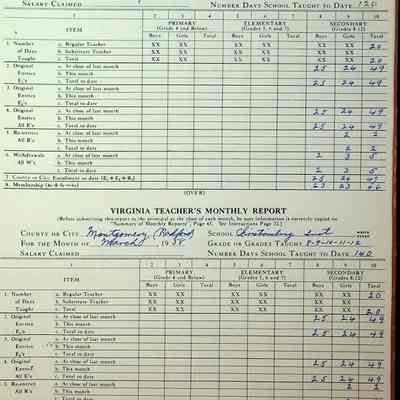 SALARY CLAIMED NUMBER DAYS SCHOOL TAUGHT TO DATE 120
1 2 3 4 5 6 7 8 9 10
ITEM PRIMARY (Grade 4 and Below) ELEMENTARY (Grades 5, 6 and 7) SECONDARY (Grades 8-12)
Boys Girls Total Boys Girls Total Boys Girls Total
1. Number a. Regular Teacher XX XX XX XX XX XX 20
of Days b. Substitute Teacher XX XX XX XX XX XX
Taught c. Total XX XX XX XX XX XX 20
2. Original a. At close of last month 25 24 49
Entries b. This month
E₁'s c. Total to date 25 24 49
3. Original a. At close of last month
Entries b. This month
E₂'s c. Total to date
4. Original a. At close of last month 25 24 49
Entries b. This month
All E's c. Total to date 25 24 49
5. Re-entries a. At close of last month 2 2
All R's b. This month
c. Total to date 2 2
6. Withdrawals a. At close of last month 2 3 5
All W's b. This month
c. Total to date 2 3 5
7. County or City Enrollment to date
8. Membership 23 23 46
(OVER)
VIRGINIA TEACHER'S MONTHLY REPORT
(Before submitting this report to the principal at the close of each month, be sure information is correctly copied on
"Summary of Monthly Report," Page 45. See Instructions Page 22.)
COUNTY OR CITY Montgomery (Radford) SCHOOL Christiansburg Inst WHITE
FOR THE MONTH OF March 19 GRADE OR GRADES TAUGHT 8-9-10-11-12
SALARY CLAIMED NUMBER DAYS SCHOOL TAUGHT TO DATE 140
2 3 4 5 6 7 8 9 10
ITEM PRIMARY (Grade 4 and Below) ELEMENTARY (Grades 5, 6 and 7) SECONDARY (Grades 8-12)
Boys Girls Total Boys Girls Total Boys Girls Total
1. Number a. Regular Teacher XX XX XX XX XX XX 20
of Days b. Substitute Teacher XX XX XX XX XX XX
Taught c. Total XX XX XX XX XX XX 20
2. Original a. At close of last month 25 24 49
Entries b. This month
E₁'s c. Total to date 25 24 49
3. Original a. At close of last month
Entries b. This month
E₂'s c. Total to date
4. Original a. At close of last month 25 24 49
Entries b. This month
All E's c. Total to date 25 24 49
5. Re-entries a. At close of last month 2 2
All R's b. This month
c. Total to date